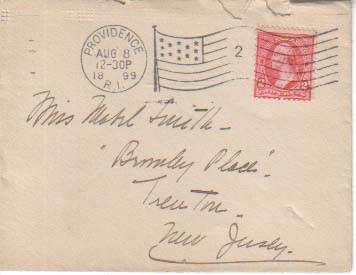 PROVIDENCE
AUG 8
12-30P
18 99
R.I.
2
2
Miss Mabel Smith-
"Bromley Place".
Trenton.
New Jersey.